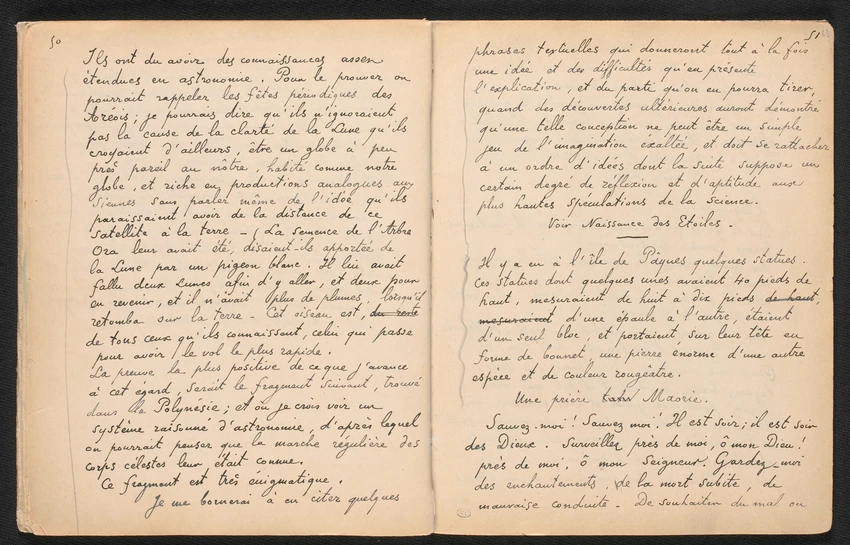 50
Ils ont du avoir des connaissances assez
étendues en astronomie. Pour le prouver on
pourrait rappeler les fêtes périodiques des
Areois; je pourrais dire qu'ils n'ignoraient
pas la cause de la clarté de la Lune qu'ils
croyaient d'ailleurs, être un globe à peu
près pareil au nôtre, habité comme notre
globe, et riche en productions analogues aux
siennes sans parler même de l'idée qu'ils
paraissaient avoir de la distance de ce
Satellite à la terre – (La semence de l'Arbre
Ora leur avait été, disaient-ils apportée de
la Lune par un pigeon blanc. Il lui avait
fallu deux Lunes afin d'y aller, et deux pour
en revenir, et il n'avait plus de plumes, lorsqu'il
retomba sur la terre – Cet oiseau est, du reste
de tous ceux qu'ils connaissent, celui qui passe
pour avoir le vol le plus rapide.
La preuve la plus positive de ce que j'avance
à cet égard, serait le fragment suivant, trouvé
dans la Polynésie; et où je crois voir un
système raisonné d'astronomie, d'après lequel
on pourrait penser que la marche régulière des
corps célestes leur était connue.
Ce fragment est très énigmatique.
Je me bornerai à en citer quelques
51
phrases textuelles qui donneront tout à la fois
une idée et des difficultés qu'en présente
l'explication, et du parte qu'on en pourra tirer,
quand des découvertes ultérieures auront démontré
qu'une telle conception ne peut être un simple
jeu de l'imagination exaltée, et doit se rattacher
à un ordre d'idées dont la suite suppose un
certain degré de réflexion et d'aptitude aux
plus hautes spéculations de la Science.
Voir Naissance des Etoiles.
Il y a eu à l'île de Pâques quelques statues.
Ces statues dont quelques unes avaient 40 pieds de
haut, mesuraient de huit à dix pieds de haut,
mesuraient d'une épaule à l'autre, étaient
d'un seul bloc, et portaient, sur leur tête en
forme de bonnet, une pierre énorme d'une autre
espèce et de couleur rougeâtre.
Une prière Maorie.
Sauvez-moi! Sauvez moi! Il est soir; il est soir
des Dieux. Surveillez près de moi, ô mon Dieu!
près de moi, ô mon Seigneur. Gardez-moi
des enchantements, de la mort subite, de
mauvaise conduite. – De souhaiter du mal ou